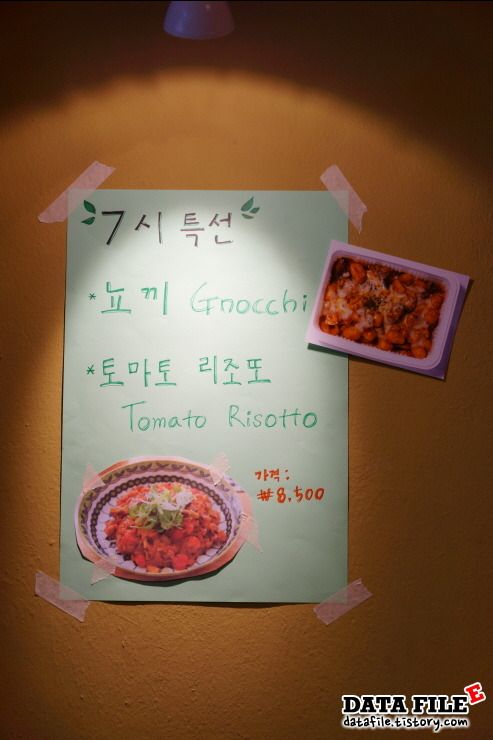 7시 특선
*뇨끼 Gnocchi
*토마토 리조또
Tomato Risotto
가격:
₩8,500
DATA FILE E
datafile.tistory.com